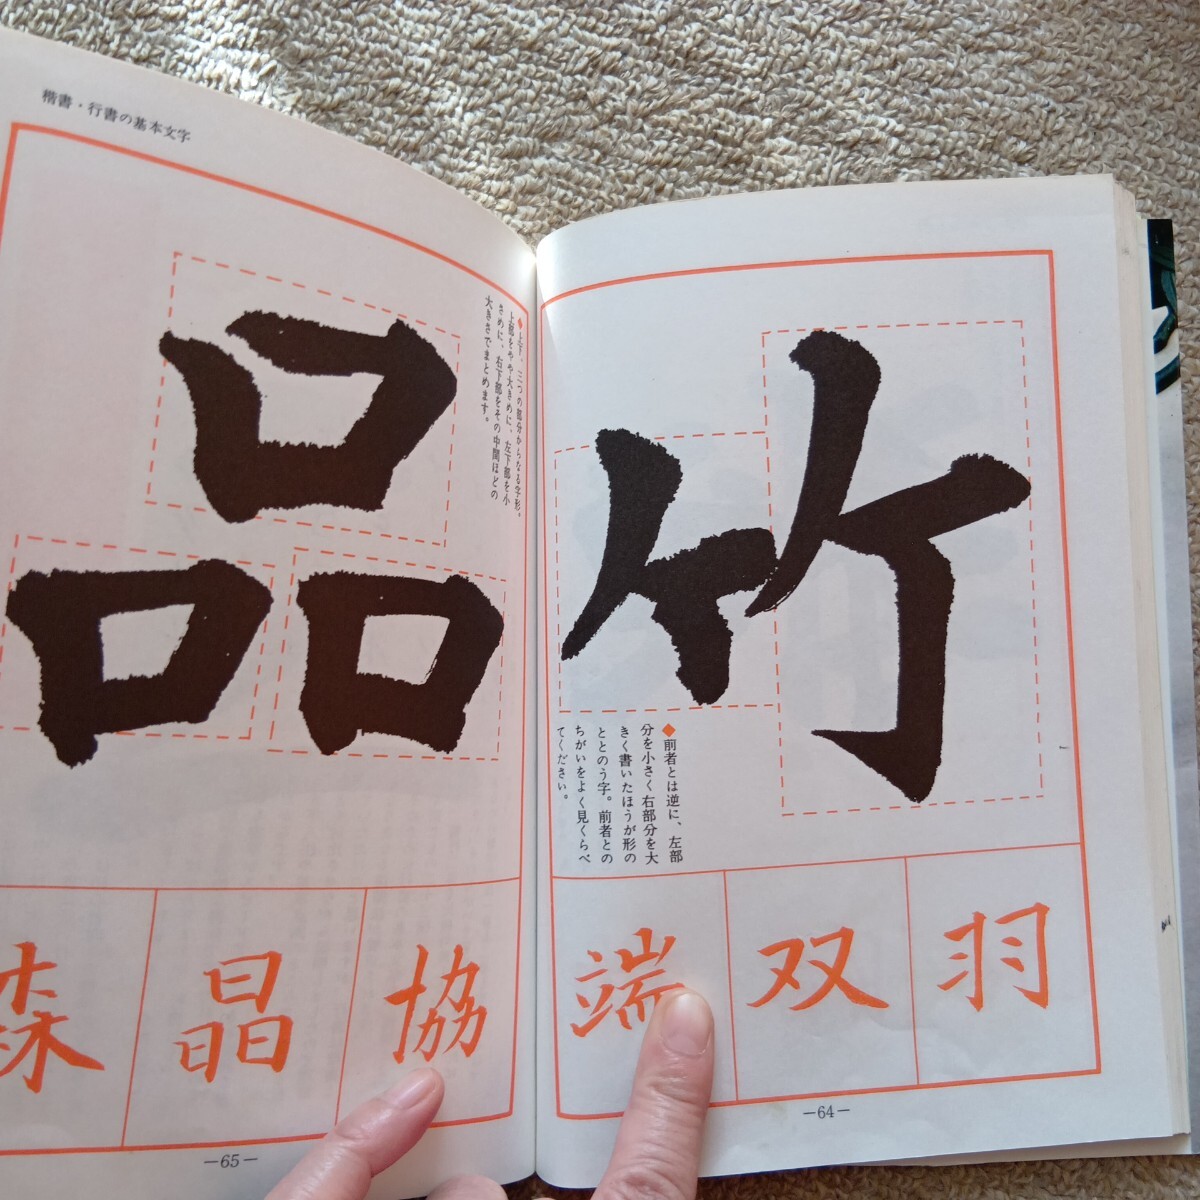 竹
◆前者とは逆に、左部
分を小さく右部分を大
きく書いたほうが形の
ととのう字。前者との
ちがいをよく見くらべ
てください。
羽
双
端
—64—
楷書・行書の基本文字
品
◆上下、三つの部分からなる字形。
上部をやや大きめに、左下部を小
さめに、右下部をその中間ほどの
大きさでまとめます。
協
晶
森
—65—